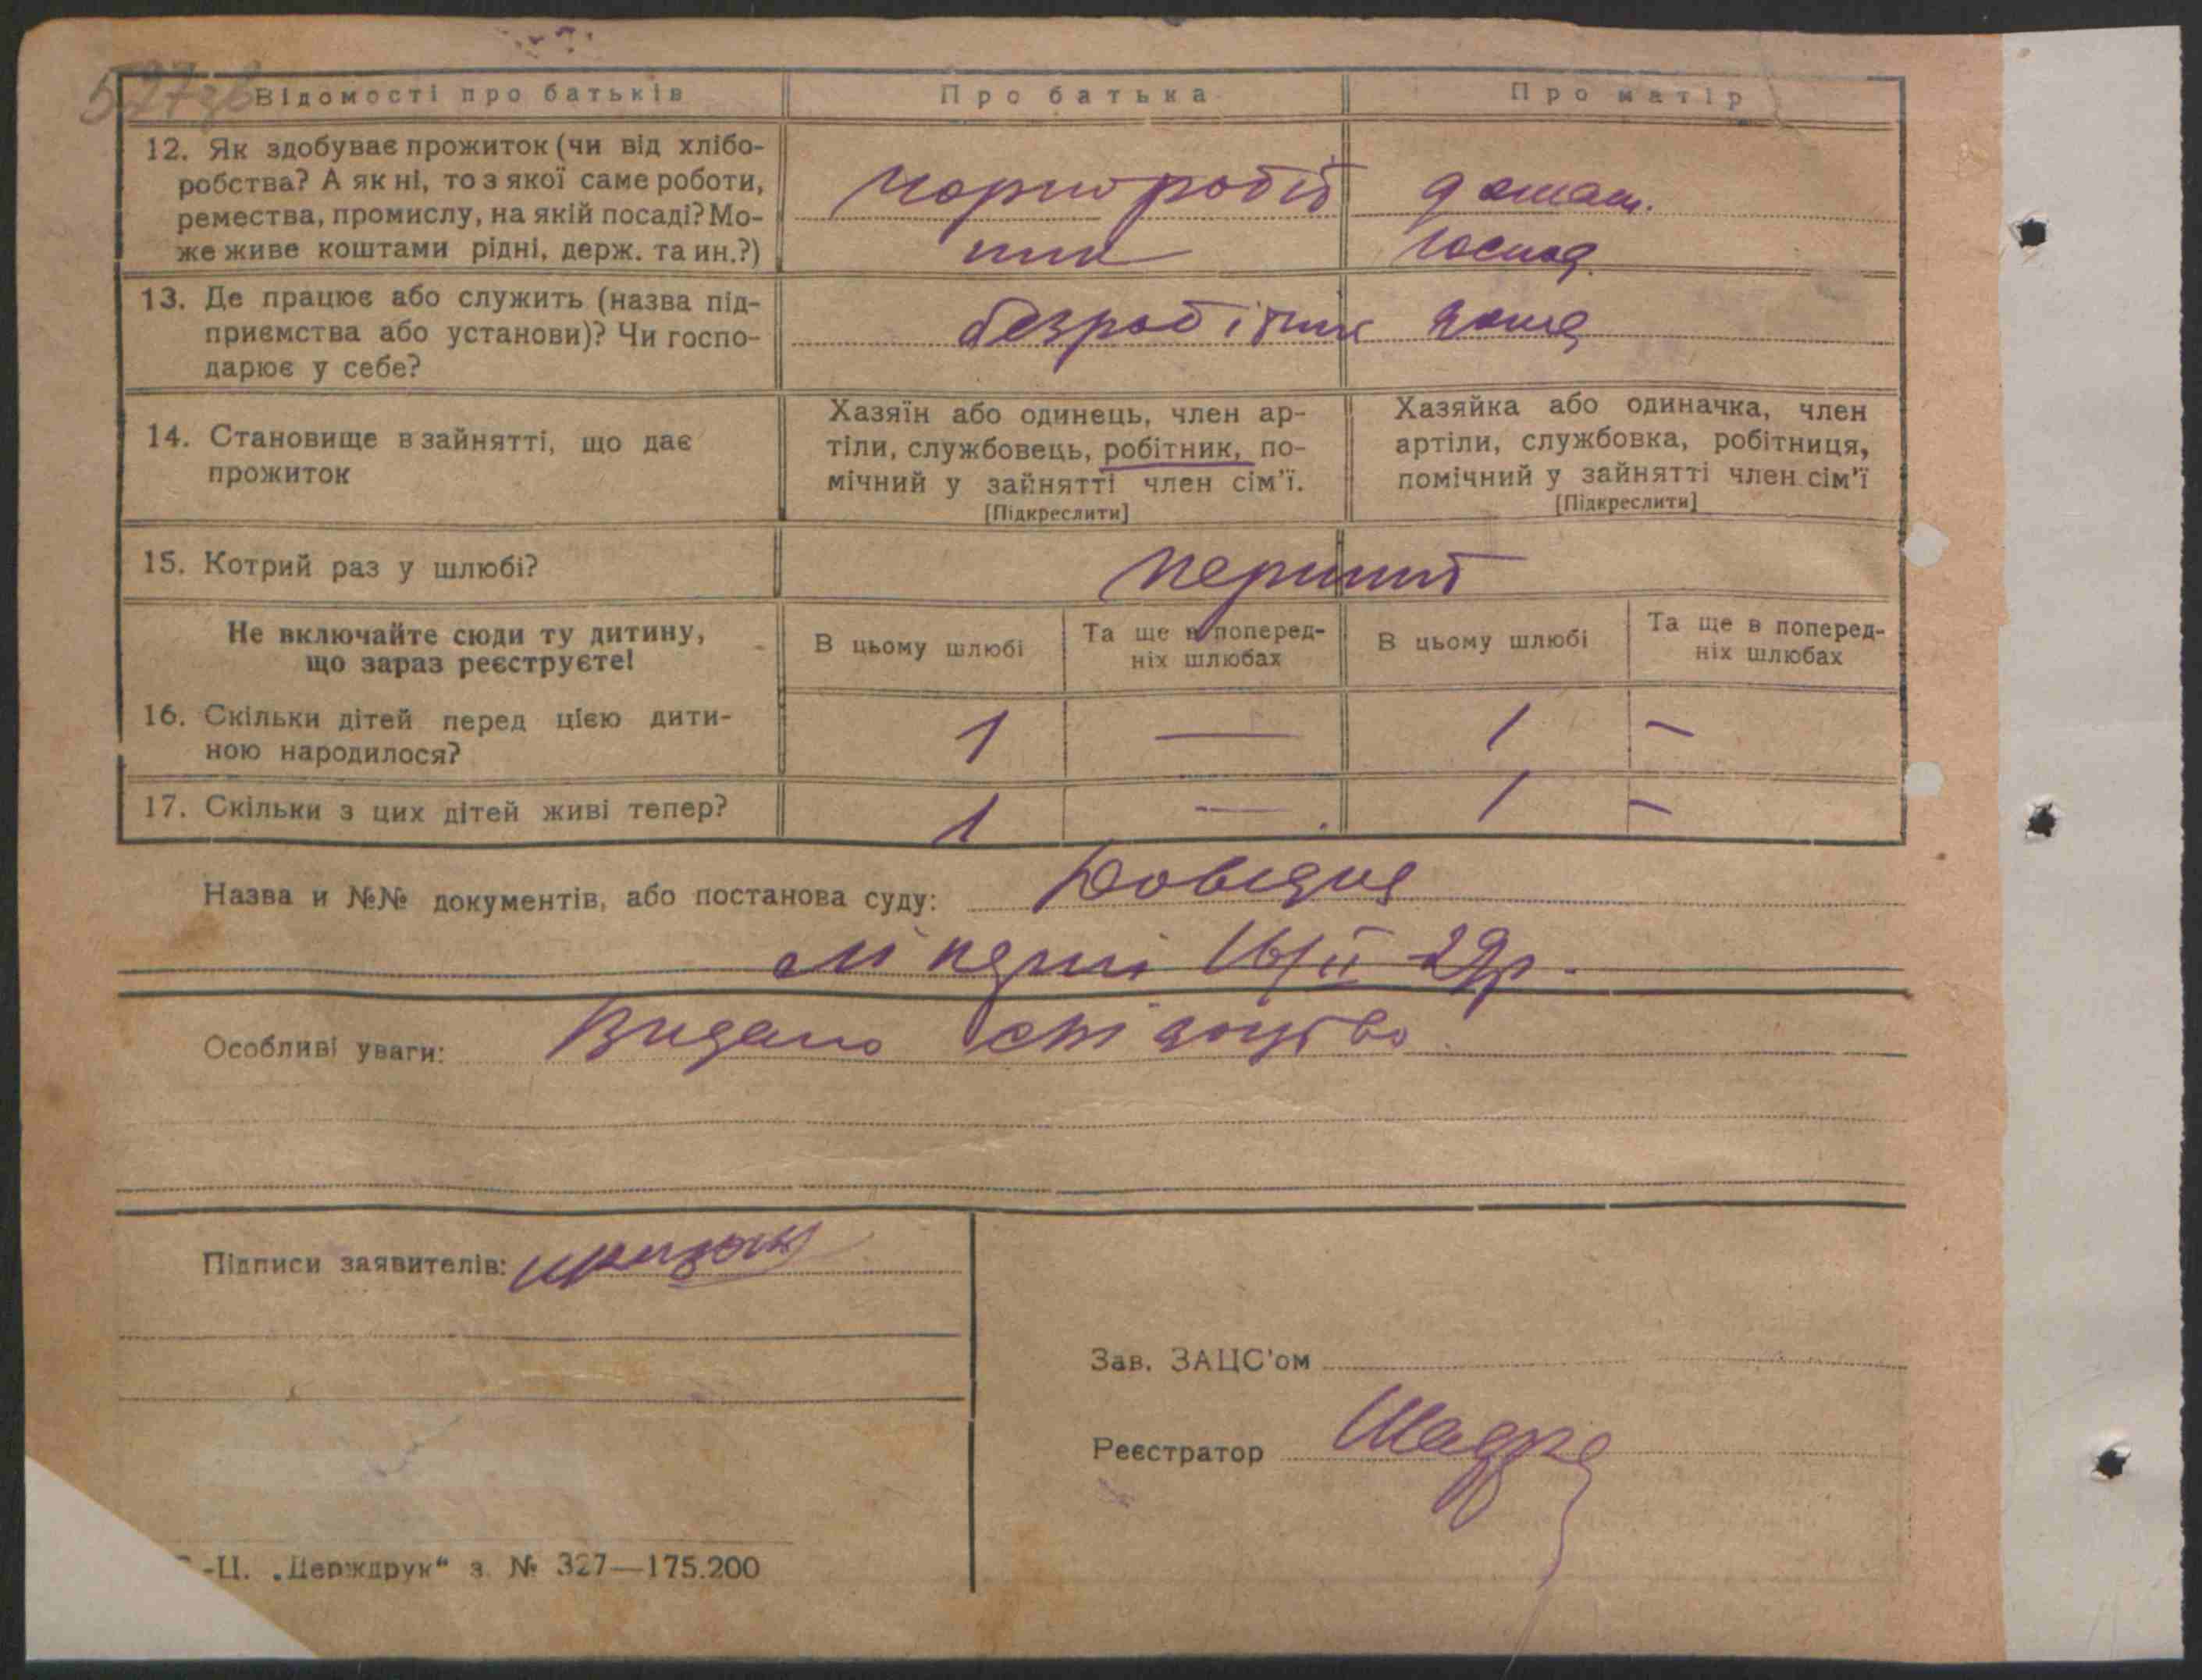 527зв
Відомості про батьків Про батька Про матір
12. Як здобуває прожиток (чи від хлібо-
робства? А як ні, то з якої саме роботи,
ремества, промислу, на якій посаді? Мо-
же живе коштами рідні, держ. та ин.?)
чорноробіт
ник
домаш.
господ.
13. Де працює або служить (назва під-
приємства або установи)? Чи госпо-
дарює у себе?
безробітник
14. Становище в зайнятті, що дає
прожиток
Хазяїн або одинець, член ар-
тіли, службовець, робітник, по-
мічний у зайнятті член сім'ї.
[Підкреслити]
Хазяйка або одиначка, член
артіли, службовка, робітниця,
помічний у зайнятті член сім'ї
[Підкреслити]
15. Котрий раз у шлюбі? перший
Не включайте сюди ту дитину,
що зараз реєструєте!
В цьому шлюбі
Та ще в поперед-
ніх шлюбах
В цьому шлюбі
Та ще в поперед-
ніх шлюбах
16. Скільки дітей перед цією дити-
ною народилося?
1 — 1 —
17. Скільки з цих дітей живі тепер? 1 — 1 —
Назва и №№ документів, або постанова суду: Довідка
16/II 29р.
Особливі уваги: Видано свідоцтво
Підписи заявителів:
Зав. ЗАЦС'ом
Реєстратор
-Ц. „Держдрук“ з. № 327—175.200